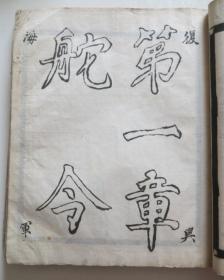 第一章
舵令
復興
海軍